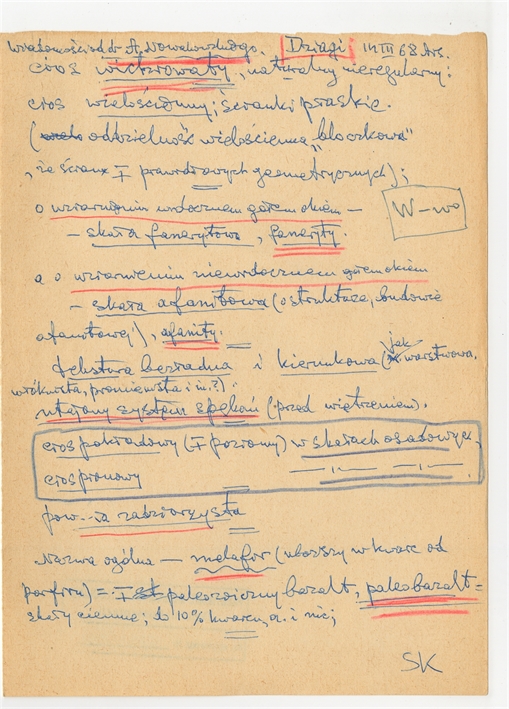 Wiadomości od dr A. Nowakowskiego. Dziagi 14 III 68
cios wietrowaty, naturalny nieregularny:
cios wielościenny; ścianki płaskie.
( oddzielność wielościenna „bloczkowa”
, ze ścian ∓ prawdziwych geometrycznych);
o uziarnieniu widocznem gołem okiem — W-wa
— skała fanerytowa, faneryty.
a o uziarnieniu niewidocznem gołem okiem
— skała afanitowa (o strukturze, budowie
afanitowej), afanity.
tekstura bezładna i kierunkowa (jak warstwowa,
włóknista, promienista i in.?).
utajony system spękań (przed wietrzeniem).
cios pokładowy (∓ poziomy) w skałach osadowych
cios pionowy —ıı— —ıı—
pow...ia zadziorzysta
Nazwa ogólna — melafir (uboższy w kwarc od
porfiru) = ∓ paleozoiczny bazalt, paleobazalt =
skały ciemne; do 10% kwarcu, a i nic;
SK